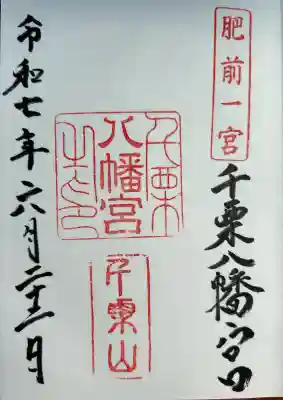 肥前一宮
千栗八幡宮
千栗八幡宮之印
千栗山
令和七年六月二十二日